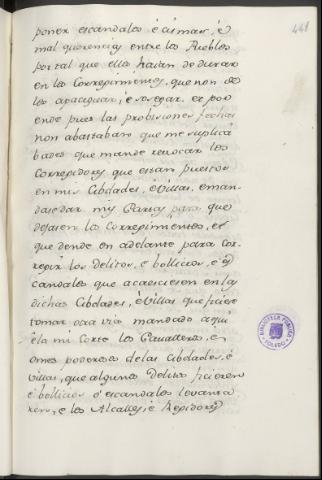 441
poner escandalos é cismas, é
mal querencias entre los Pueblos
por tal que ellos haian de durar
en los Correpimientos, que non de
los apaciguar, é sosegar, é por
ende pues las provisiones fechas
non abastaban que me suplica
bades que mande revocar los
Correpidores, que estan puestos
en mis Cibdades, é Villas, é man
dase dar mis Cartas para que
dejasen los Correpimientos, é
que dende en adelante para cor
repir los delitos, é bollicios, é es
candalos que acaesciesen en las
dichas Cibdades, é Villas que ficiese
tomar otra via mandado aqui
é la mi Corte los Cavalleros, é
omes poderosos de las Cibdades, é
Villas, que algunos delitos ficieren
é bollicios ó escandalos levanta
ren, é los Alcalles, é Rexidores
BIBLIOTECA PUBLICA
TOLEDO